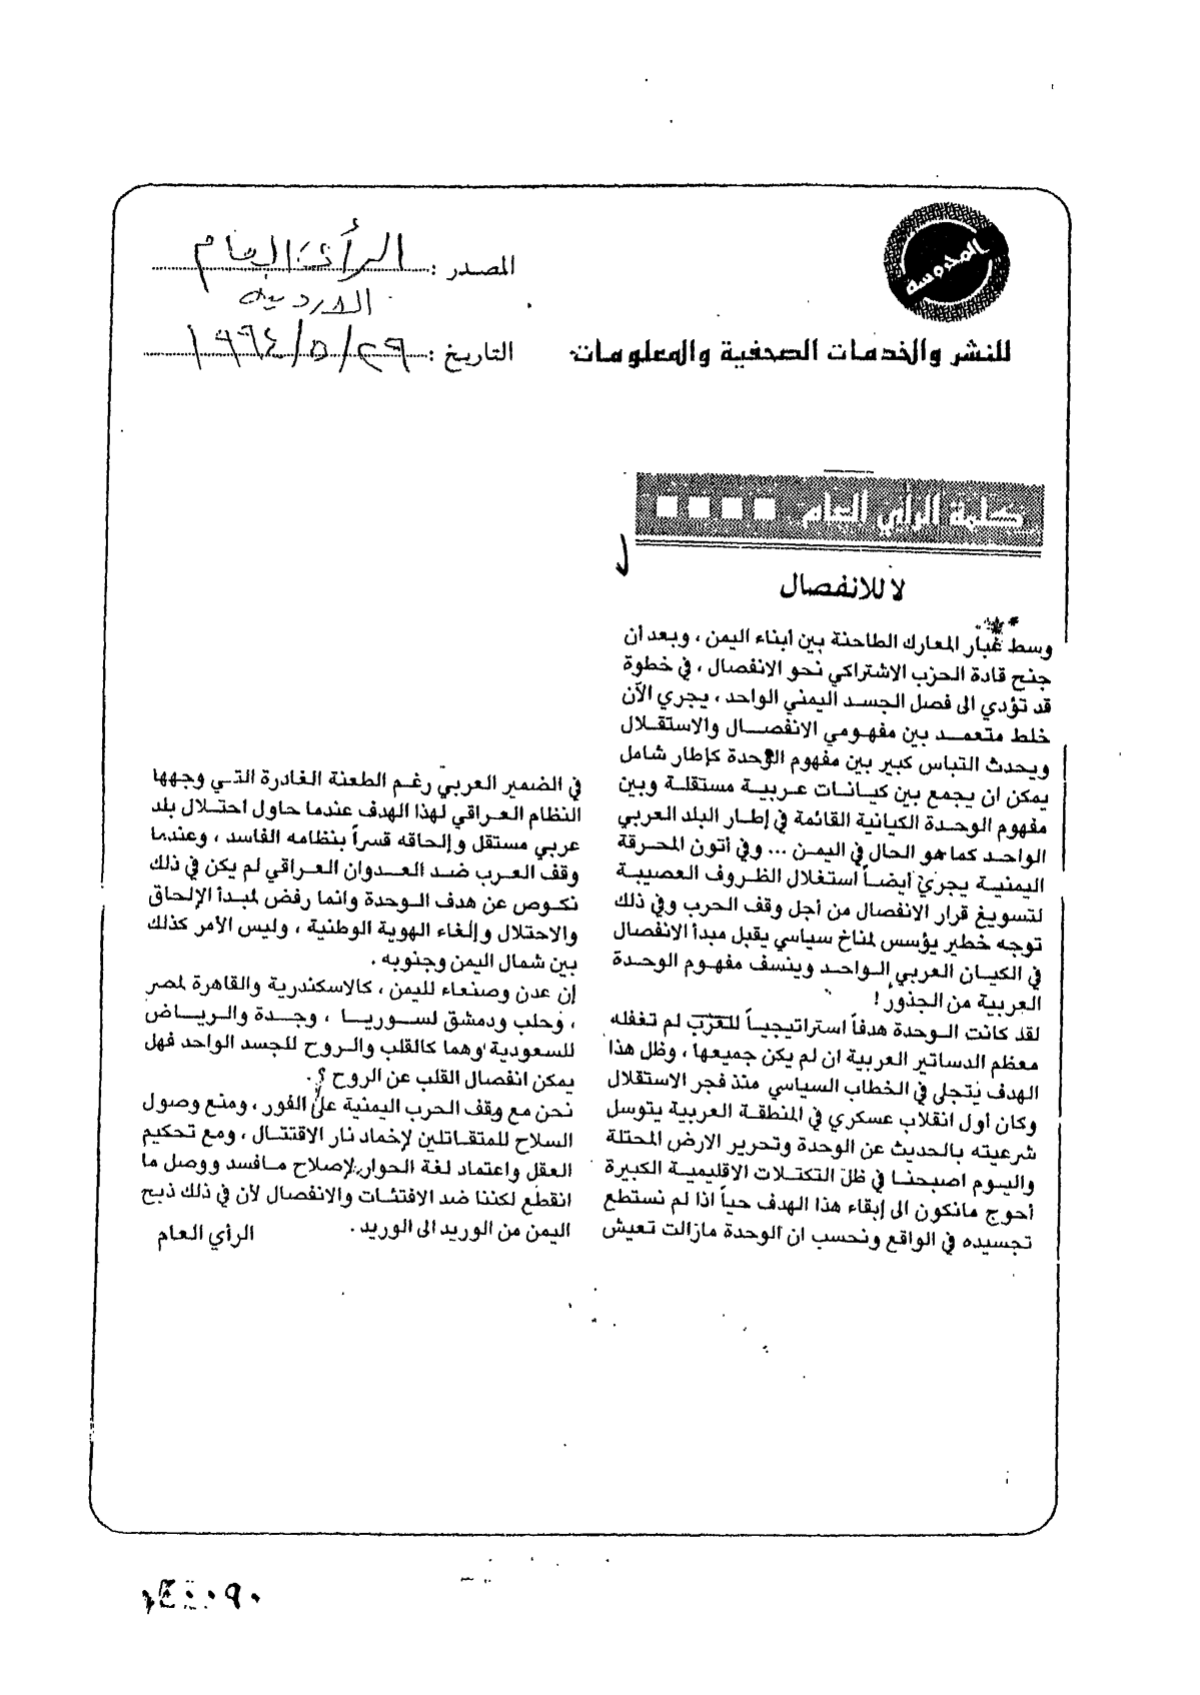 المحروسه
للنشر والخدمات الصحفية والمعلومات
المصدر : الرأى العام
الاردنية
التاريخ : ٢٩/٥/١٩٩٤
كلمة الرأي العام
لا للانفصال
وسط غبار المعارك الطاحنة بين أبناء اليمن ، وبعد أن
جنح قادة الحزب الاشتراكي نحو الانفصال ، في خطوة
قد تؤدي الى فصل الجسد اليمني الواحد ، يجري الآن
خلط متعمد بين مفهومي الانفصال والاستقلال
ويحدث التباس كبير بين مفهوم الوحدة كإطار شامل
يمكن ان يجمع بين كيانات عربية مستقلة وبين
مفهوم الوحدة الكيانية القائمة في إطار البلد العربي
الواحد كما هو الحال في اليمن ... وفي أتون المحرقة
اليمنية يجري أيضاً استغلال الظروف العصيبة
لتسويغ قرار الانفصال من أجل وقف الحرب وفي ذلك
توجه خطير يؤسس لمناخ سياسي يقبل مبدأ الانفصال
في الكيان العربي الواحد وينسف مفهوم الوحدة
العربية من الجذور !
لقد كانت الوحدة هدفاً استراتيجياً للعرب لم تغفله
معظم الدساتير العربية ان لم يكن جميعها ، وظل هذا
الهدف يتجلى في الخطاب السياسي منذ فجر الاستقلال
وكان أول انقلاب عسكري في المنطقة العربية يتوسل
شرعيته بالحديث عن الوحدة وتحرير الارض المحتلة
واليوم اصبحنا في ظل التكتلات الاقليمية الكبيرة
أحوج مانكون الى إبقاء هذا الهدف حياً اذا لم نستطع
تجسيده في الواقع ونحسب ان الوحدة مازالت تعيش
في الضمير العربي رغم الطعنة الغادرة التي وجهها
النظام العراقي لهذا الهدف عندما حاول احتلال بلد
عربي مستقل وإلحاقه قسراً بنظامه الفاسد ، وعندما
وقف العرب ضد العدوان العراقي لم يكن في ذلك
نكوص عن هدف الوحدة وانما رفض لمبدأ الإلحاق
والاحتلال وإلغاء الهوية الوطنية ، وليس الأمر كذلك
بين شمال اليمن وجنوبه .
إن عدن وصنعاء لليمن ، كالاسكندرية والقاهرة لمصر
، وحلب ودمشق لسوريا ، وجدة والرياض
للسعودية وهما كالقلب والروح للجسد الواحد فهل
يمكن انفصال القلب عن الروح ؟ .
نحن مع وقف الحرب اليمنية على الفور ، ومنع وصول
السلاح للمتقاتلين لإخماد نار الاقتتال ، ومع تحكيم
العقل واعتماد لغة الحوار لإصلاح مافسد ووصل ما
انقطع لكننا ضد الافتئات والانفصال لأن في ذلك ذبح
اليمن من الوريد الى الوريد .
الرأي العام